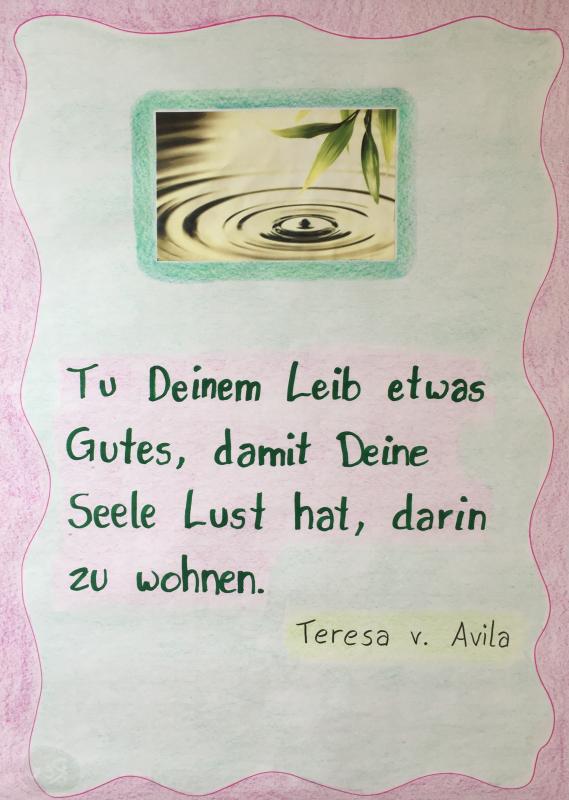 Tu Deinem Leib etwas
Gutes, damit Deine
Seele Lust hat, darin
zu wohnen.
Teresa v. Avila